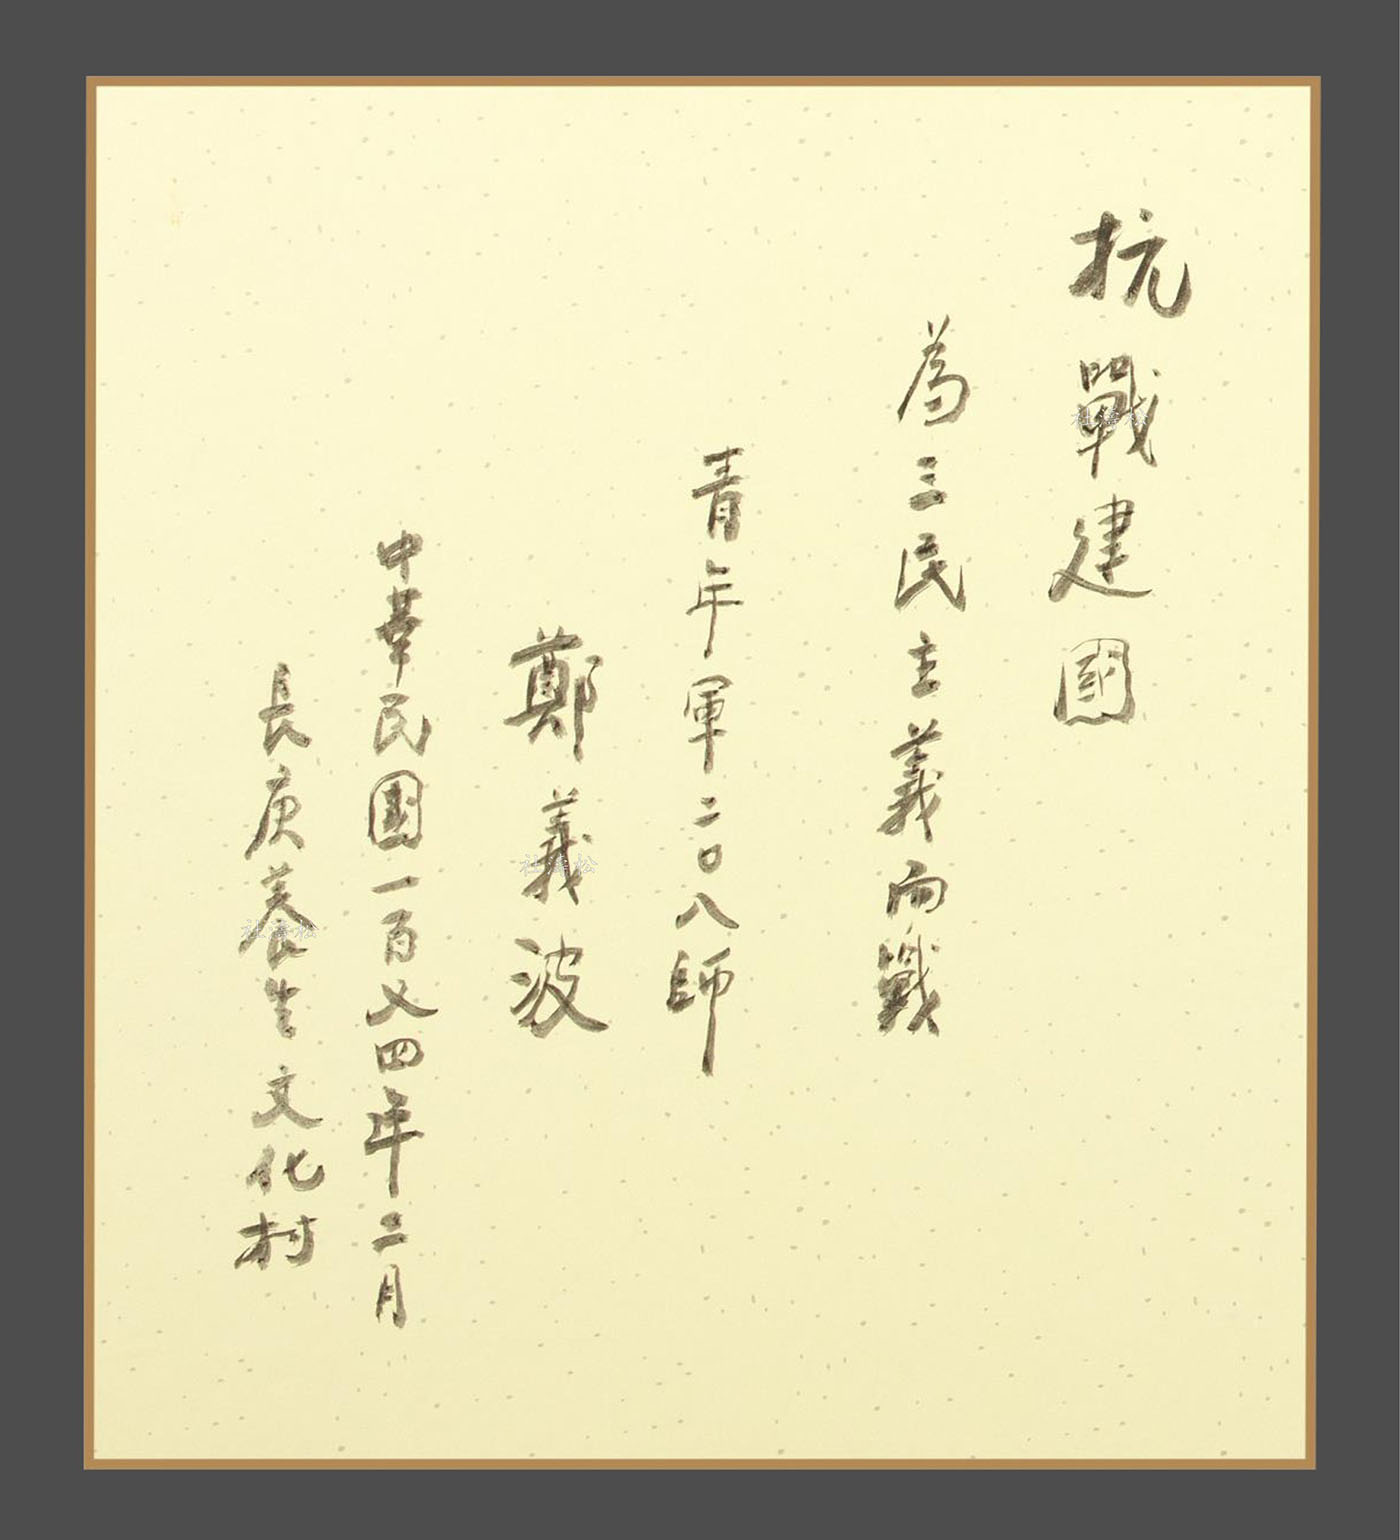 抗戰建國
為三民主義而戰
青年軍二〇八師
鄭義波
中華民國一百又四年二月
長庚養生文化村